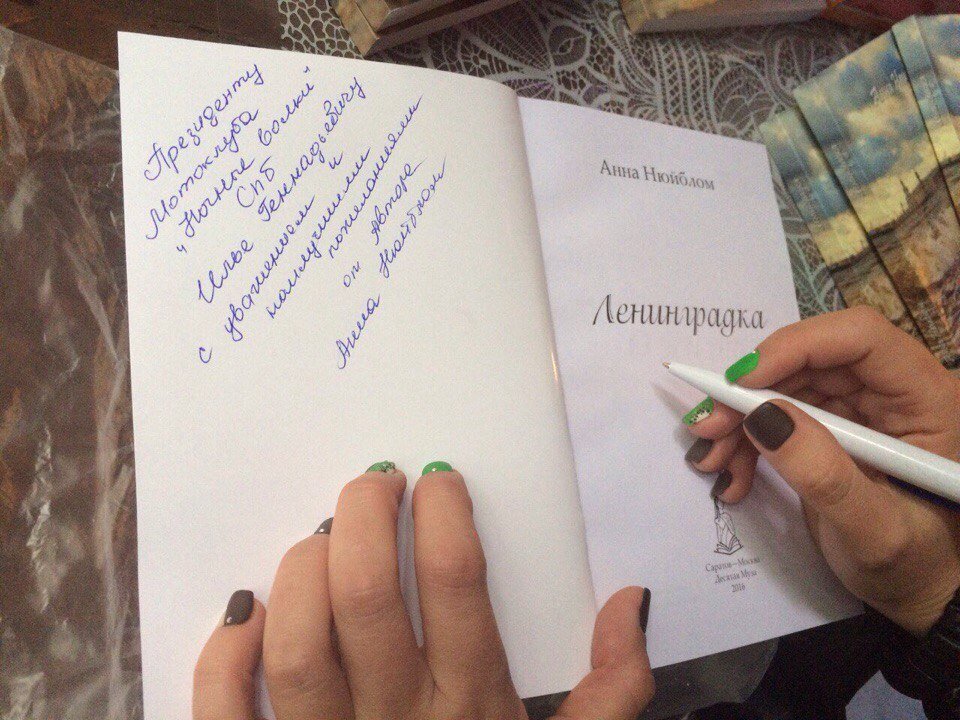 Президенту
Мотоклуба
"Ночные волки"
СПб
Илье Геннадьевичу
с уважением и
наилучшими
пожеланиями
от Автора
Анна Нюйблом
Анна Нюйблом
Ленинградка
Саратов—Москва
Десятая Муза
2016